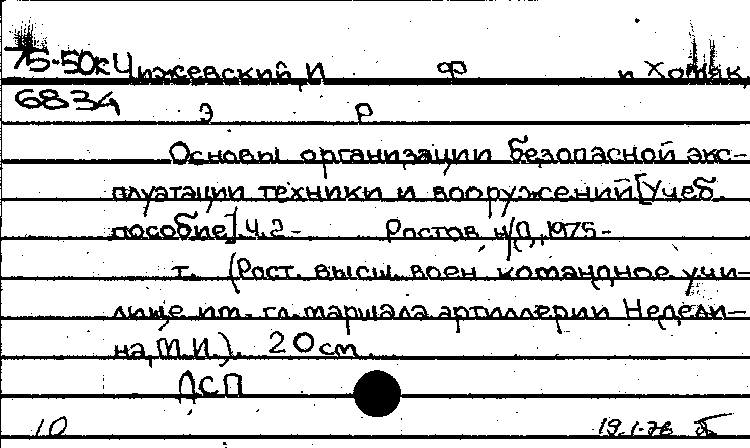 75-50к Чижевский, И Ф и Хомяк,
6834 Э Р
Основы организации безопасной экс-
плуатации техники и вооружений [Учеб.
пособие]. Ч. 2 - Ростов н/Д, 1975-
т. (Рост. высш. воен командное учи-
лище им. гл. маршала артиллерии Недели-
на, М.И.). 20 см.
ДСП
10 19.1.76